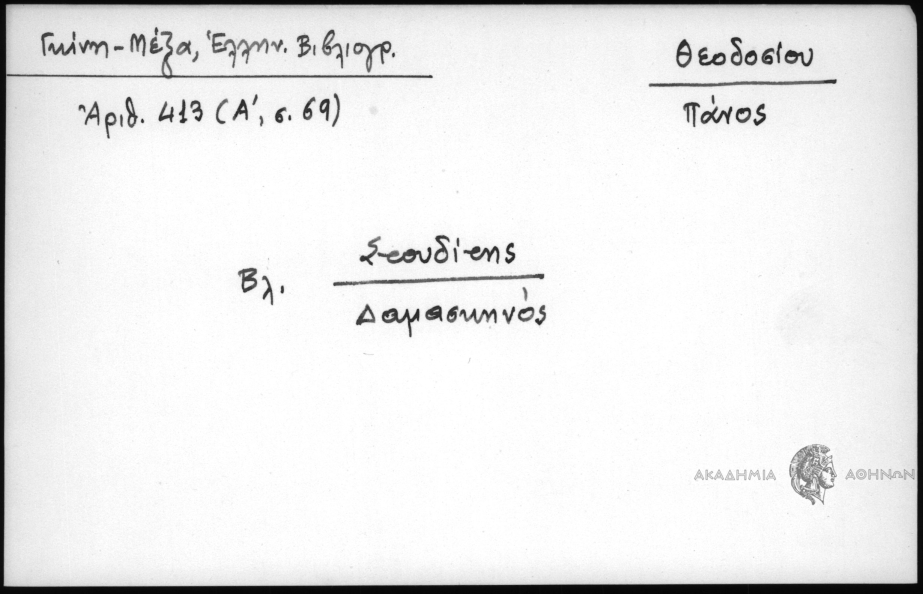 Γκίνη-Μέξα, Ἑλλην. Βιβλιογρ.
Θεοδοσίου
Ἀριθ. 413 (Α', σ. 69)
Πάνος
Στουδίτης
Βλ.
Δαμασκηνὸς
ΑΚΑΔΗΜΙΑ ΑΘΗΝΩΝ